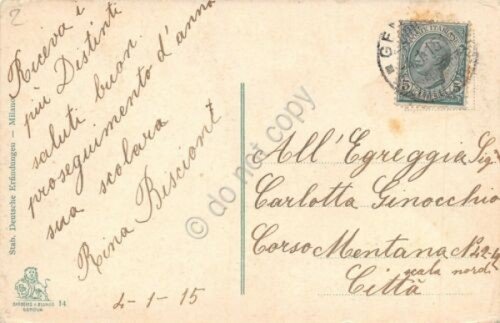 2
Riceva i
più Distinti
saluti buon
proseguimento d'anno
sua scolara
Rina Biscioni
4-1-15
All'Egreggia Sig
Carlotta Ginocchio
Corso Mentana N°
scala nord
Città
Stab. Deutsche Erfindungen – Milano
GENOVA
14
GE
15
5
5
© do not copy